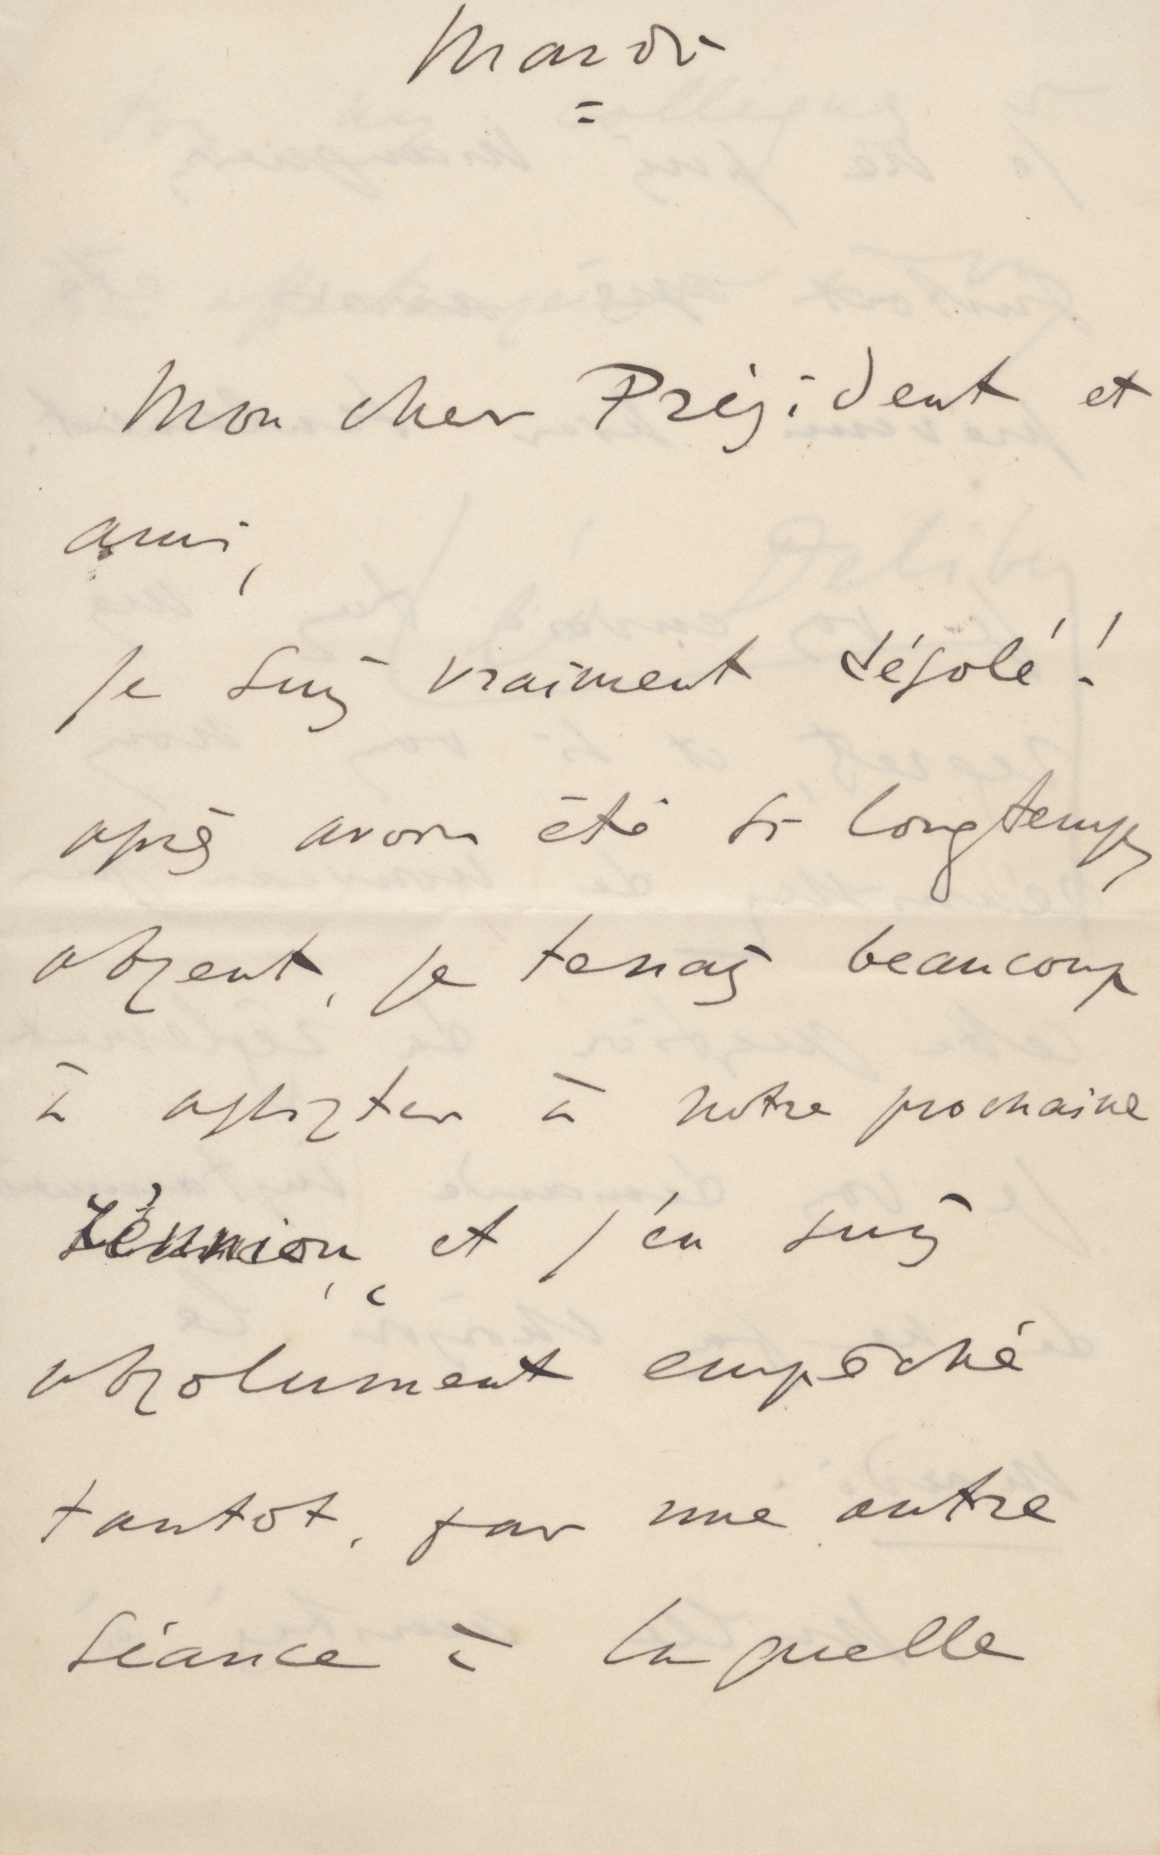 Mardi
Mon cher Président et
ami,
je suis vraiment désolé !
après avoir été si longtemps
absent, je tenais beaucoup
à assister à notre prochaine
réunion, et j'en suis
absolument empêché
tantot, par une autre
séance à laquelle